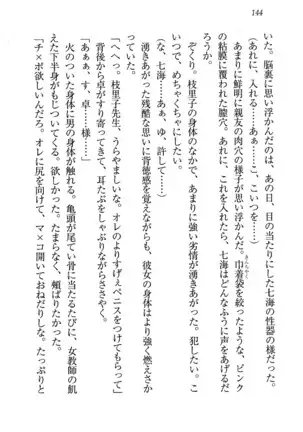 144
い。脳裏に思い浮かんだのは、あの日、目の当たりにした七海の性器の様だった。
（あれに、入れる……あぁ……こ、こいつを……）
あまりに鮮明に親友の肉穴の様子が思い浮かんだ。巾着袋を絞ったような、ピンク
の粘膜に覆われた膣穴。あれに、これを入れたら、七海はどんなふうに声をあげるだ
ろうか。
（な、七海……あぁ……ゆ、許して……）
ぞくり。枝里子の身体のなかで、あまりに強い劣情が湧きあがった。してみた
いつで、めちゃくちゃにしたい。
湧きあがった残酷な思いに背徳感を覚えながらも、彼女の身体はより強く燃えさか
っていた。
「へへっ。枝里子先生、うらやましいな。オレのよりすげぇペニスをつけてもらって」
背後から卓がすり寄ってきて、耳たぶをしゃぶりながらささやく。
「あぁぁ、す、卓……様……」
火のついた身体に男の身体が触れる。亀頭が尾てい骨に当たるたびに、女教師の飢
えた下半身がもじついてくる。欲しかった。たまらなく、頬ばりたくなった。
「チ×ポ欲しいんだろ。オレに尻を向けて、マ×コ開いておねだりしな。たっぷりと